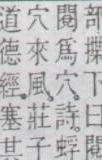 部揲下曰閱
閱爲穴。詩。蜉
穴來風。莊子
道德經。塞其